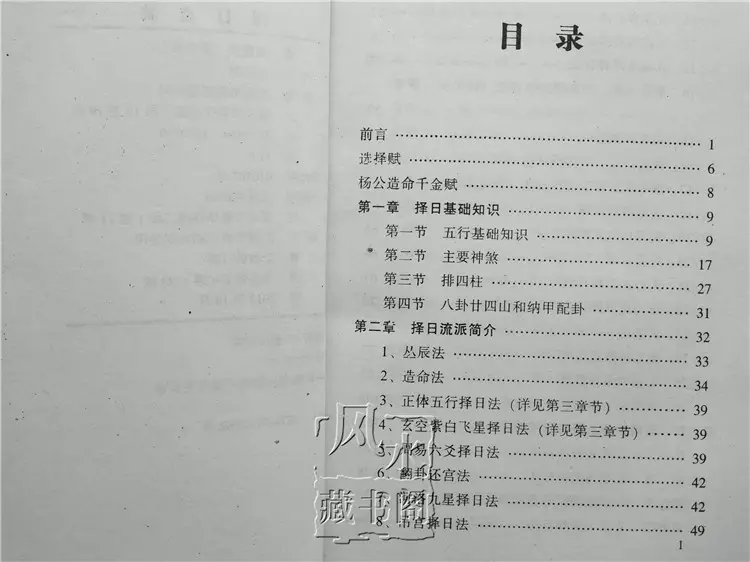 目 录
前言 …………………………………… 1
选择赋 …………………………………… 6
杨公造命千金赋 …………………………………… 8
第一章 择日基础知识 …………………………………… 9
第一节 五行基础知识 …………………………………… 9
第二节 主要神煞 …………………………………… 17
第三节 排四柱 …………………………………… 27
第四节 八卦廿四山和纳甲配卦 …………………………………… 31
第二章 择日流派简介 …………………………………… 32
1、丛辰法 …………………………………… 33
2、造命法 …………………………………… 34
3、正体五行择日法(详见第三章节) …………… 39
4、玄空紫白飞星择日法(详见第三章节) ………… 39
5、周易六爻择日法 …………………………………… 39
6、翻卦还宫法 …………………………………… 42
7、 九星择日法 …………………………………… 42
8、 宫择日法 …………………………………… 49
风水
藏书阁
I